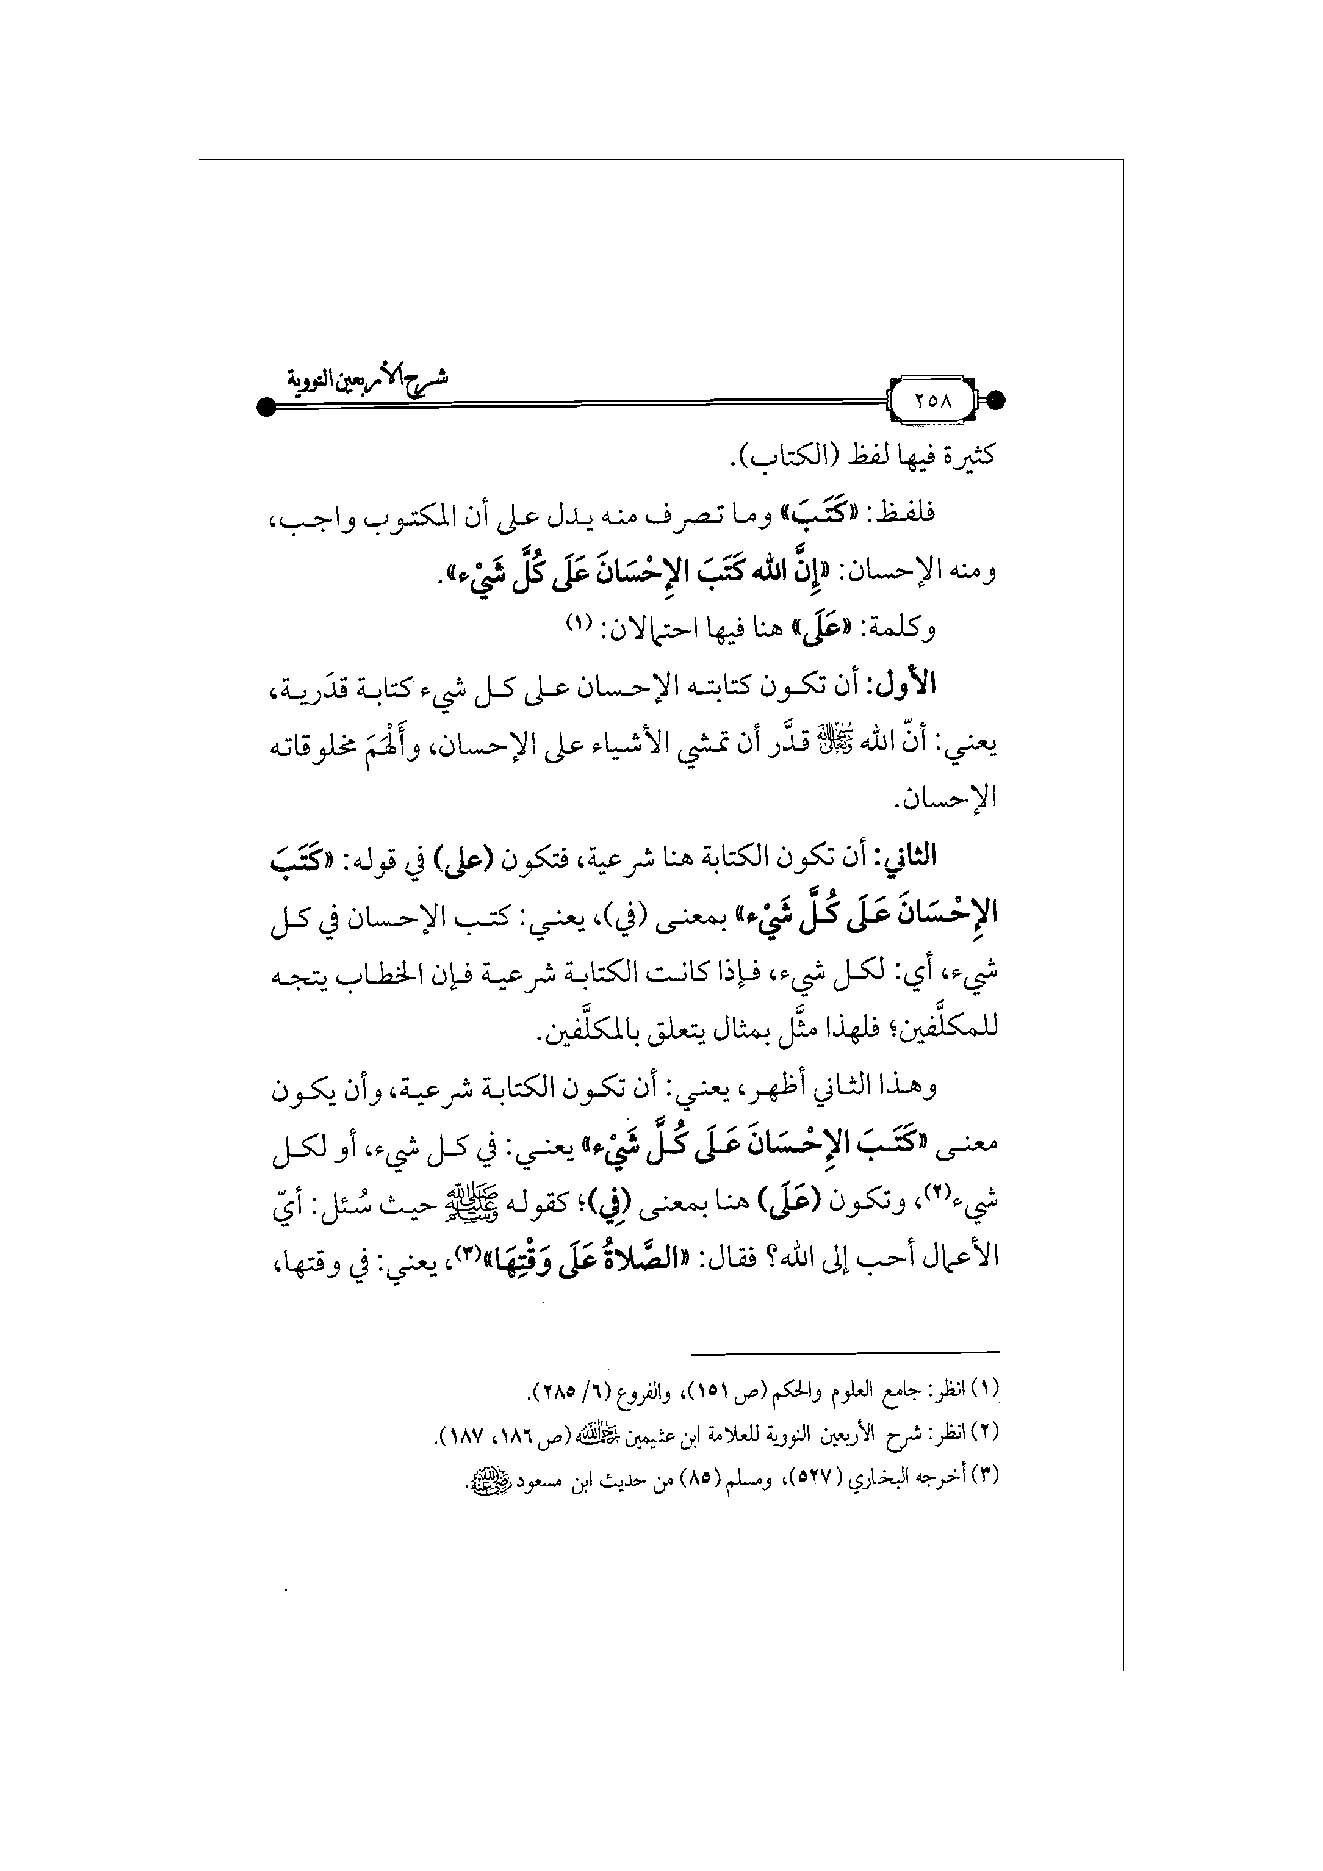 شرح الأربعين النووية
٢٥٨
كثيرة فيها لفظ (الكتاب).
فلفظ: «كَتَبَ» وما تصرف منه يدل على أن المكتوب واجب،
ومنه الإحسان: «إِنَّ الله كَتَبَ الإِحْسَانَ عَلَى كُلِّ شَيْءٍ».
وكلمة: «عَلَى» هنا فيها احتمالان: (١)
الأول: أن تكون كتابته الإحسان على كل شيء كتابة قدَرية،
يعني: أنّ الله ﷻ قدَّر أن تمشي الأشياء على الإحسان، وأَلْهَمَ مخلوقاته
الإحسان.
الثاني: أن تكون الكتابة هنا شرعية، فتكون (على) في قوله: «كَتَبَ
الإِحْسَانَ عَلَى كُلِّ شَيْءٍ» بمعنى (في)، يعني: كتب الإحسان في كل
شيء، أي: لكل شيء، فإذا كانت الكتابة شرعية فإن الخطاب يتجه
للمكلَّفين؛ فلهذا مثَّل بمثال يتعلق بالمكلَّفين.
وهذا الثاني أظهر، يعني: أن تكون الكتابة شرعية، وأن يكون
معنى «كَتَبَ الإِحْسَانَ عَلَى كُلِّ شَيْءٍ» يعني: في كل شيء، أو لكل
شيء(٢)، وتكون (عَلَى) هنا بمعنى (فِي)؛ كقوله ﷺ حيث سُئل: أيّ
الأعمال أحب إلى الله؟ فقال: «الصَّلاةُ عَلَى وَقْتِهَا»(٣)، يعني: في وقتها،
(١) انظر: جامع العلوم والحكم (ص ١٥١)، والفروع (٦/ ٢٨٥).
(٢) انظر: شرح الأربعين النووية للعلامة ابن عثيمين رحمه الله (ص ١٨٦، ١٨٧).
(٣) أخرجه البخاري (٥٢٧)، ومسلم (٨٥) من حديث ابن مسعود رضي الله عنه.